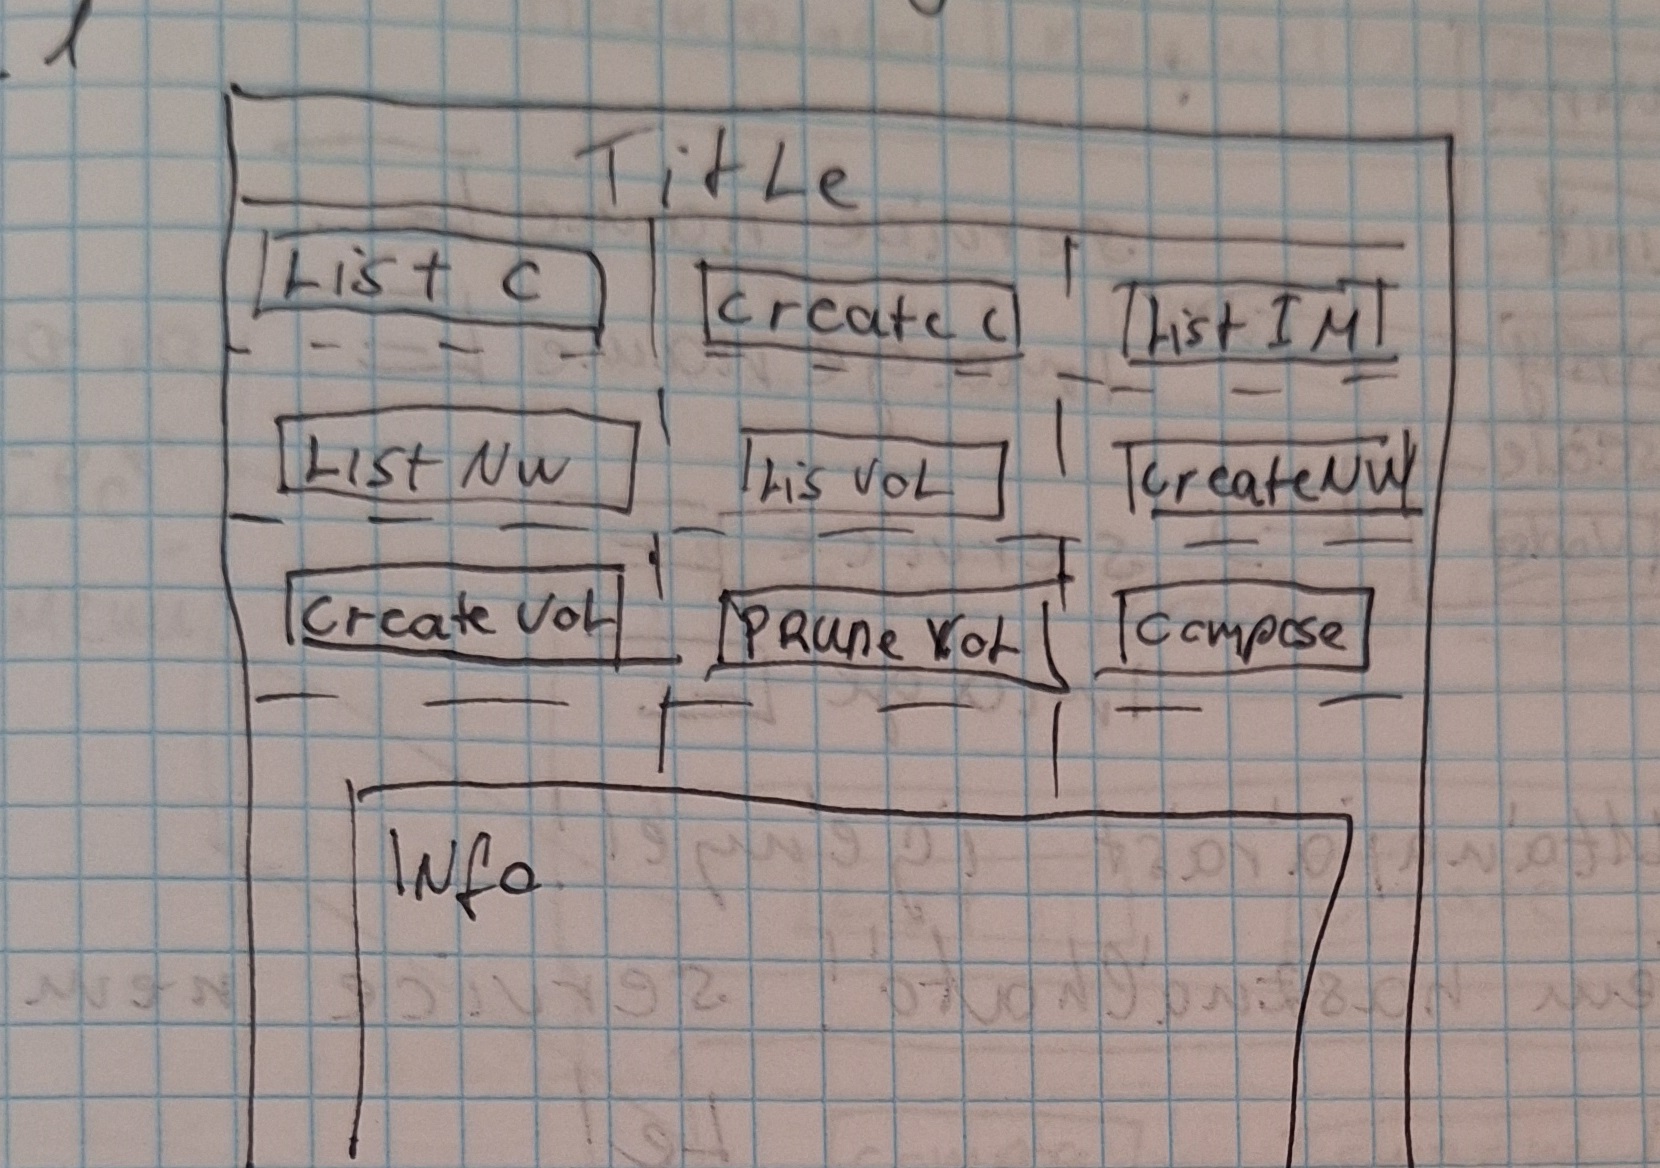 1
Title
List C
Create C
List IM
List NW
Lis VOL
CreateNW
Create VOL
PRUNe VOL
Compose
INfo